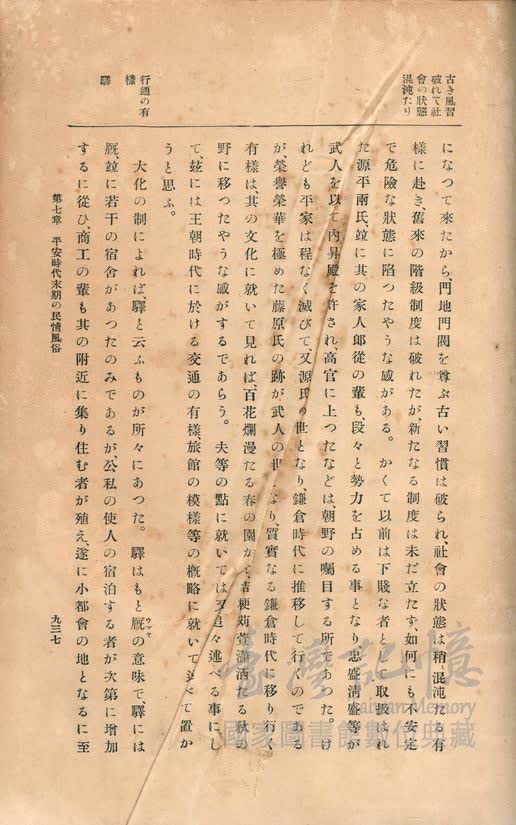 古き風習
破れて社
會の狀態
混沌たり
行通の有
樣
驛
になつて來たから、門地門閥を尊ぶ古い習慣は破られ、社會の狀態は稍〻混沌たる有
樣に赴き、舊來の階級制度は破れたが、新たなる制度は未だ立たず、如何にも不安定
で危險な狀態に陷つたやうな感がある。かくて以前は下賤な者として取扱はれ
た源平兩氏、竝に其の家人郞從の輩も、段々と勢力を占める事となり、忠盛淸盛等が
武人を以て內昇殿を許され、高官に上つたなどは、朝野の囑目する所であつた。け
れども平家は程なく滅びて、又源氏の世となり、鎌倉時代に推移して行くのである
が、榮譽榮華を極めた藤原氏の跡が武人の世となり、質實なる鎌倉時代に移り行く
有樣は、其の文化に就いて見れば、百花爛漫たる春の園から、桔梗苅萱瀟洒たる秋の
野に移つたやうな感がするであらう。夫等の點に就いては又追々述べる事にし
て、玆には王朝時代に於ける交通の有樣、旅館の模樣等の槪略に就いて述べて置か
うと思ふ。
大化の制によれば、驛と云ふものが所々にあつた。驛はもと厩の意味で、驛には
ウマヤ
厩、竝に若干の宿舍があつたのみであるが、公私の使人の宿泊する者が次第に增加
するに從ひ、商工の輩も其の附近に集り住む者が殖え、遂に小都會の地となるに至
第七章 平安時代末期の民情風俗
九三七
臺灣記憶
Taiwan Memory
國家圖書館數位典藏